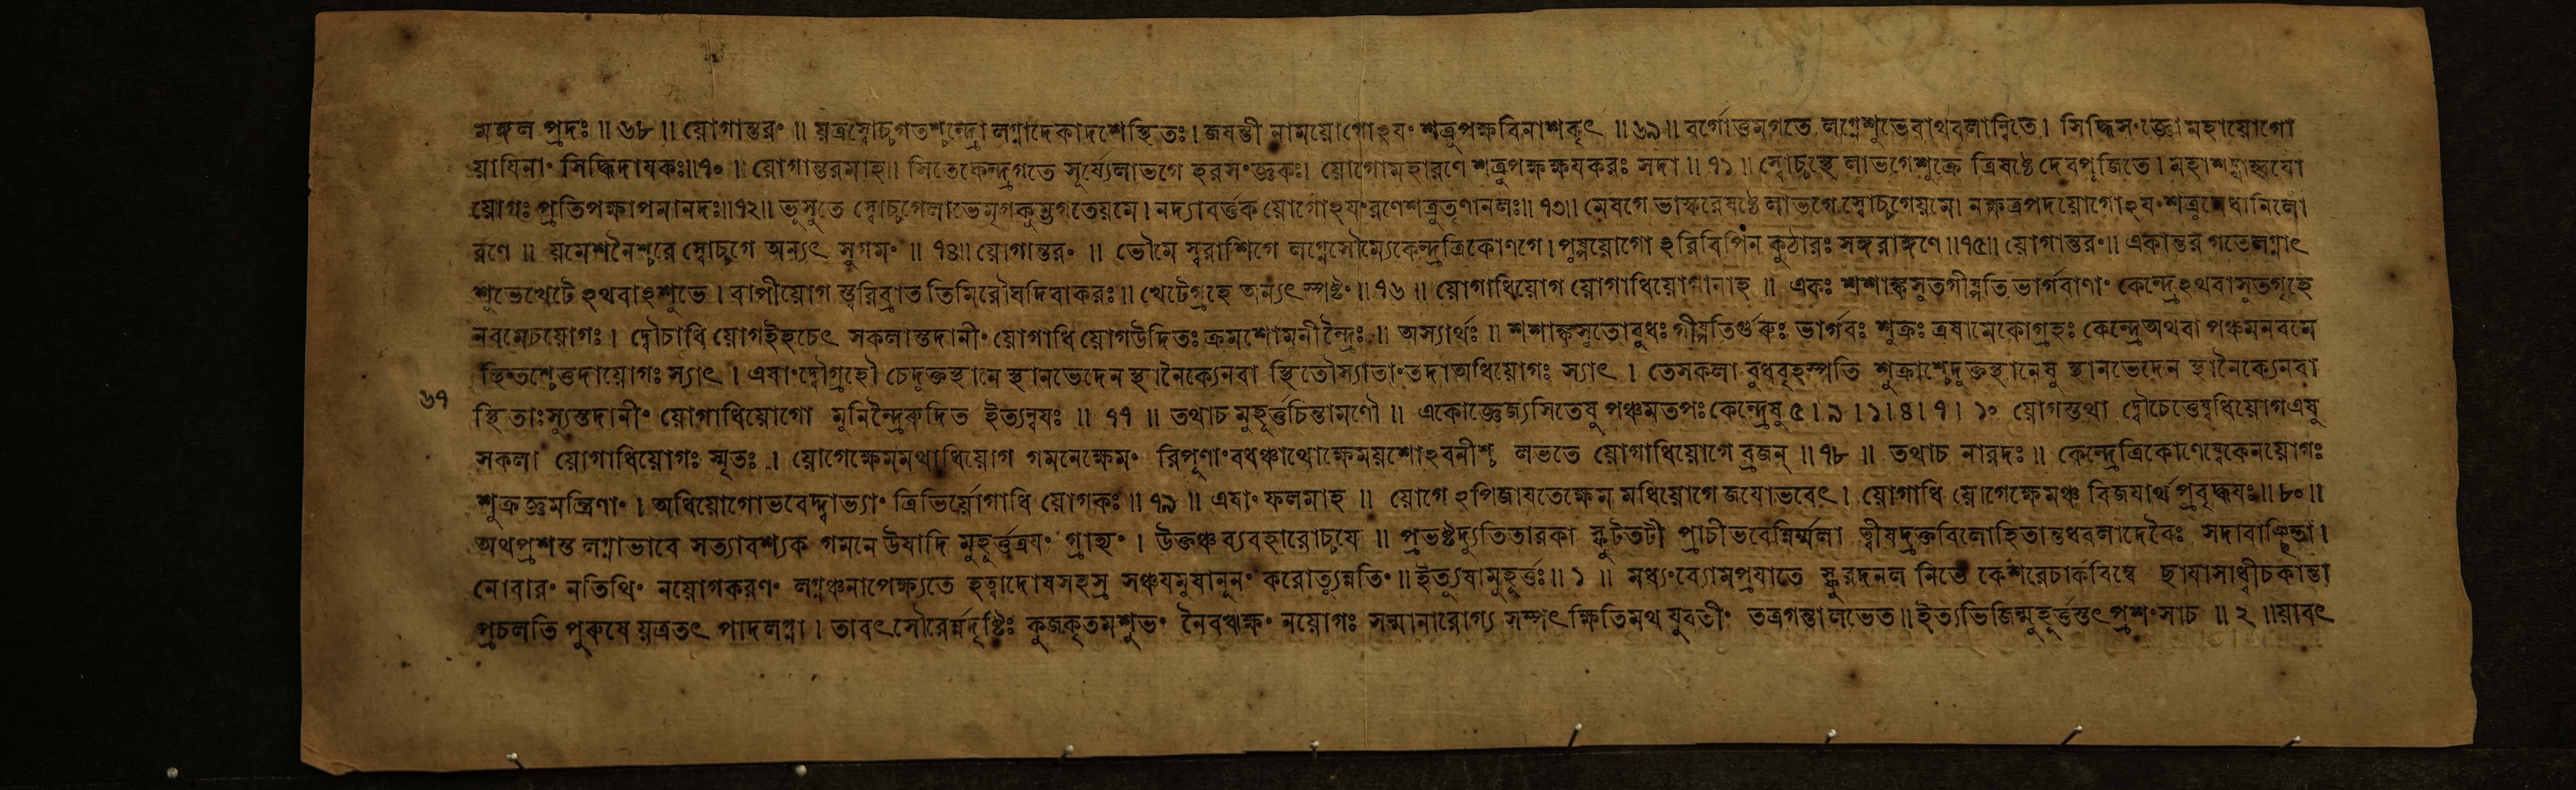 মঙ্গল প্রদঃ ॥ ৬৮ ॥ য়োগান্তরং ॥ য়ত্রস্বোচ্চগতশ্চন্দ্রো লগ্নাদেকাদশেস্থিতঃ। জযন্তী নাময়োগোঽযং শত্রুপক্ষবিনাশকৃৎ ॥ ৬৯ ॥ বর্গোত্তমগতে লগ্নেশুভেবাথবলান্বিতে। সিদ্ধিসংজ্ঞোমহায়োগো
য়াযিনাং সিদ্ধিদাযকঃ॥ ৭০ ॥ য়োগান্তরমাহ॥ সিতেকেন্দ্রগতে সূর্য্যেলাভগে হরসংজ্ঞকঃ। য়োগোমহারণে শত্রুপক্ষক্ষযকরঃ সদা ॥ ৭১ ॥ স্বোচ্চস্থে লাভগেশুক্রে ত্রিষষ্ঠে দেবপূজিতে।
য়োগঃ প্রতিপক্ষাপমানদঃ॥৭২॥ ভূসুতে স্বোচ্চগেলাভেমৃগকুম্ভগতেয়মে। নদ্যাবর্ত্তক য়োগোঽযংরণেশত্রুতৃণানলঃ॥ ৭৩॥ মেষগে ভাস্করেষষ্ঠে লাভগে স্বোচ্চগেয়মে। নক্ষত্রপদয়োগোঽযংশত্রুমেধানিলো
রণে ॥ য়মেশনৈশ্চরে স্বোচ্চগে অন্যৎ সুগমং ॥ ৭৪॥ য়োগান্তরং ॥ ভৌমে স্বরাশিগে লগ্নেসৌম্যেকেন্দ্রত্রিকোণগে। পদ্মময়োগো ঽরিবিপিন কুঠারঃ সঙ্গরাঙ্গণে ॥৭৫॥ য়োগান্তরং॥ একান্তর গতেলগ্নাৎ
শুভেখেটে ঽথবাঽশুভে। বাপীয়োগ স্ত্বরিব্রাত তিমিরৌঘদিবাকরঃ॥ খেটেগ্রহে অন্যৎ স্পষ্টং॥ ৭৬ ॥ য়োগাধিয়োগ য়োগাধিয়োগানাহ ॥ একঃ শশাঙ্কসুতগীষ্পতি ভার্গবাণাং কেন্দ্রেঽথবাসুতগৃহে
নবমেচয়োগঃ। দ্বৌচাধি য়োগইহচেৎ সকলাস্তদানীং য়োগাধি য়োগউদিতঃ ক্রমশোমুনীন্দ্রৈঃ ॥ অস্যার্থঃ ॥ শশাঙ্কসুতোবুধঃ গীষ্পতির্গুরুঃ ভার্গবঃ শুক্রঃ ত্রষামেকোগ্রহঃ কেন্দ্রেঅথবা পঞ্চমনবমে
স্থিতশ্চেত্তদায়োগঃ স্যাৎ। এষাংদ্বৌগ্রহৌ চেদুক্তস্থানে স্থানভেদেন স্থানৈক্যেনবা স্থিতৌস্যাতাংতদাঅধিয়োগঃ স্যাৎ। তেসকলা বুধবৃহস্পতি শুক্রাশ্চেদুক্তস্থানেষু স্থানভেদেন স্থানৈক্যেনবা
৬৭
স্থিতাঃস্যুস্তদানীং য়োগাধিয়োগো মুনিন্দ্রৈরুদিত ইত্যন্বযঃ ॥ ৭৭ ॥ তথাচ মুহূর্ত্তচিন্তামণৌ ॥ একোজ্ঞেজ্যসিতেষু পঞ্চমতপঃকেন্দ্রেষু ৫।৯।১।৪।৭। ১০ য়োগস্তথা দ্বৌচেত্তেষ্বধিয়োগএষু
সকলা য়োগাধিয়োগঃ স্মৃতঃ। য়োগেক্ষেমমথাধিয়োগ গমনেক্ষেমং রিপূণাংবধঞ্চাথোক্ষেময়শোঽবনীশ্চ লভতে য়োগাধিয়োগে ব্রজন্ ॥ ৭৮ ॥ তথাচ নারদঃ ॥ কেন্দ্রেত্রিকোণেষ্বেকেনয়োগঃ
শুক্রজ্ঞমন্ত্রিণাং। অধিয়োগোভবেদ্দ্বাভ্যাং ত্রিভির্য়োগাধি য়োগকঃ॥ ৭৯ ॥ এষাং ফলমাহ ॥ য়োগে ঽপিজাযতেক্ষেম মধিয়োগে জযোভবেৎ। য়োগাধি য়োগেক্ষেমঞ্চ বিজযার্থ প্রবৃদ্ধযঃ॥ ৮০॥
অথপ্রশস্ত লগ্নাভাবে সত্যাবশ্যক গমনে উষাদি মুহূর্ত্তত্রযং গ্রাহ্যং। উক্তঞ্চ ব্যবহারোচ্চযে ॥ প্রভষ্টদ্যুতিতারকা স্ফুটতটী প্রাচীভবেন্নির্ম্মলা ত্বীষদ্রক্তবিলোহিতান্তধবলাদেবৈঃ সদাবাঞ্ছিতা।
নোবারং নতিথিং নয়োগকরণং লগ্নঞ্চনাপেক্ষ্যতে হত্বাদোষসহস্র সঞ্চযমুষানূনং করোত্যুন্নতিং॥ ইত্যুষামুহূর্ত্তঃ॥ ১ ॥ মধ্যংব্যোমপ্রযাতে স্ফুরদনল নিভে কেশরেচার্কবিম্বে ছাযাসাধ্বীচকান্তা
প্রচলতি পুরুষে য়ত্রতৎ পাদলগ্না। তাবৎসৌরের্ন্নদৃষ্টিঃ কুজকৃতমশুভং নৈবঋক্ষং নয়োগঃ সন্মানারোগ্য সম্পৎ ক্ষিতিমথ যুবতীং তত্রগন্তালভেত॥ইত্যভিজিন্মুহূর্ত্তস্তৎ প্রশংসাচ ॥ ২ ॥য়াবৎ